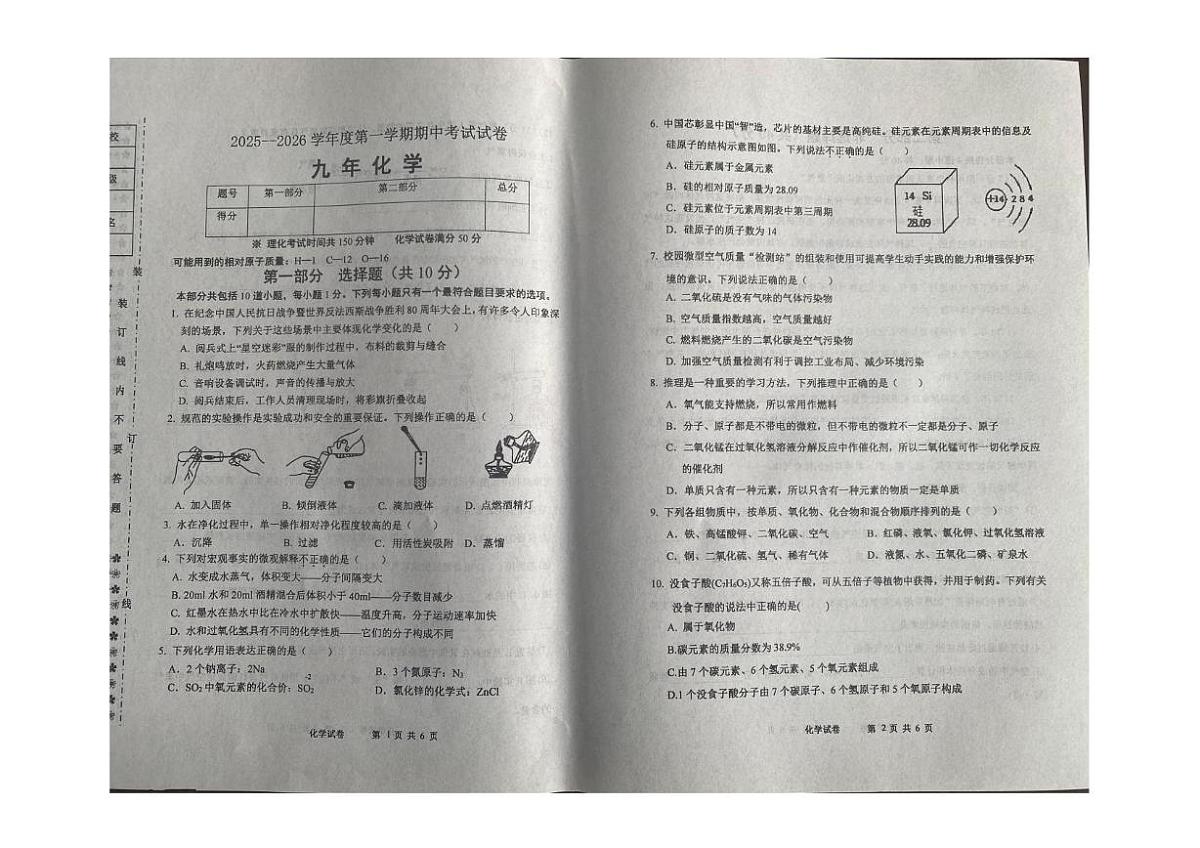 校
级
名
装
订
线
内
不
要
答
题
装
订
线
2025--2026 学年度第一学期期中考试试卷
九 年 化 学
题号 第一部分 第二部分 总分
得分
※ 理化考试时间共 150 分钟 化学试卷满分 50 分
可能用到的相对原子质量：H—1 C—12 O—16
第一部分 选择题（共 10 分）
本部分共包括 10 道小题，每小题 1 分。下列每小题只有一个最符合题目要求的选项。
1. 在纪念中国人民抗日战争暨世界反法西斯战争胜利 80 周年大会上，有许多令人印象深
刻的场景，下列关于这些场景中主要体现化学变化的是（ ）
A. 阅兵式上“星空迷彩”服的制作过程中，布料的裁剪与缝合
B. 礼炮鸣放时，火药燃烧产生大量气体
C. 音响设备调试时，声音的传播与放大
D. 阅兵结束后，工作人员清理现场时，将彩旗折叠收起
2. 规范的实验操作是实验成功和安全的重要保证。下列操作正确的是（ ）
A. 加入固体 B. 倾倒液体 C. 滴加液体 D. 点燃酒精灯
3. 水在净化过程中，单一操作相对净化程度较高的是（ ）
A. 沉降 B. 过滤 C. 用活性炭吸附 D. 蒸馏
4. 下列对宏观事实的微观解释不正确的是（ ）
A. 水变成水蒸气，体积变大——分子间隔变大
B. 20ml 水和 20ml 酒精混合后体积小于 40ml——分子数目减少
C. 红墨水在热水中比在冷水中扩散快——温度升高，分子运动速率加快
D. 水和过氧化氢具有不同的化学性质——它们的分子构成不同
5. 下列化学用语表达正确的是（ ）
A. 2 个钠离子：2Na B. 3 个氮原子：N₃
-2
C. SO₂ 中氧元素的化合价：SO₂ D. 氯化锌的化学式：ZnCl
化学试卷 第 1 页 共 6 页
6. 中国芯彰显中国“智”造，芯片的基材主要是高纯硅。硅元素在元素周期表中的信息及
硅原子的结构示意图如图。下列说法不正确的是（ ）
A. 硅元素属于金属元素
B. 硅的相对原子质量为 28.09
C. 硅元素位于元素周期表中第三周期
D. 硅原子的质子数为 14
14 Si
硅
28.09
+14 2 8 4
7. 校园微型空气质量“检测站”的组装和使用可提高学生动手实践的能力和增强保护环
境的意识。下列说法正确的是（ ）
A. 二氧化硫是没有气味的气体污染物
B. 空气质量指数越高，空气质量越好
C. 燃料燃烧产生的二氧化碳是空气污染物
D. 加强空气质量检测有利于调控工业布局、减少环境污染
8. 推理是一种重要的学习方法，下列推理中正确的是（ ）
A. 氧气能支持燃烧，所以常用作燃料
B. 分子、原子都是不带电的微粒，但不带电的微粒不一定都是分子、原子
C. 二氧化锰在过氧化氢溶液分解反应中作催化剂，所以二氧化锰可作一切化学反应
的催化剂
D. 单质只含有一种元素，所以只含有一种元素的物质一定是单质
9. 下列各组物质中，按单质、氧化物、化合物和混合物顺序排列的是（ ）
A. 铁、高锰酸钾、二氧化碳、空气 B. 红磷、液氧、氯化钾、过氧化氢溶液
C. 铜、二氧化硫、氢气、稀有气体 D. 液氮、水、五氧化二磷、矿泉水
10. 没食子酸(C₇H₆O₅)又称五倍子酸，可从五倍子等植物中获得，并用于制药。下列有关
没食子酸的说法中正确的是( )
A. 属于氧化物
B.碳元素的质量分数为 38.9%
C.由 7 个碳元素、6 个氢元素、5 个氧元素组成
D.1 个没食子酸分子由 7 个碳原子、6 个氢原子和 5 个氧原子构成
化学试卷 第 2 页 共 6 页